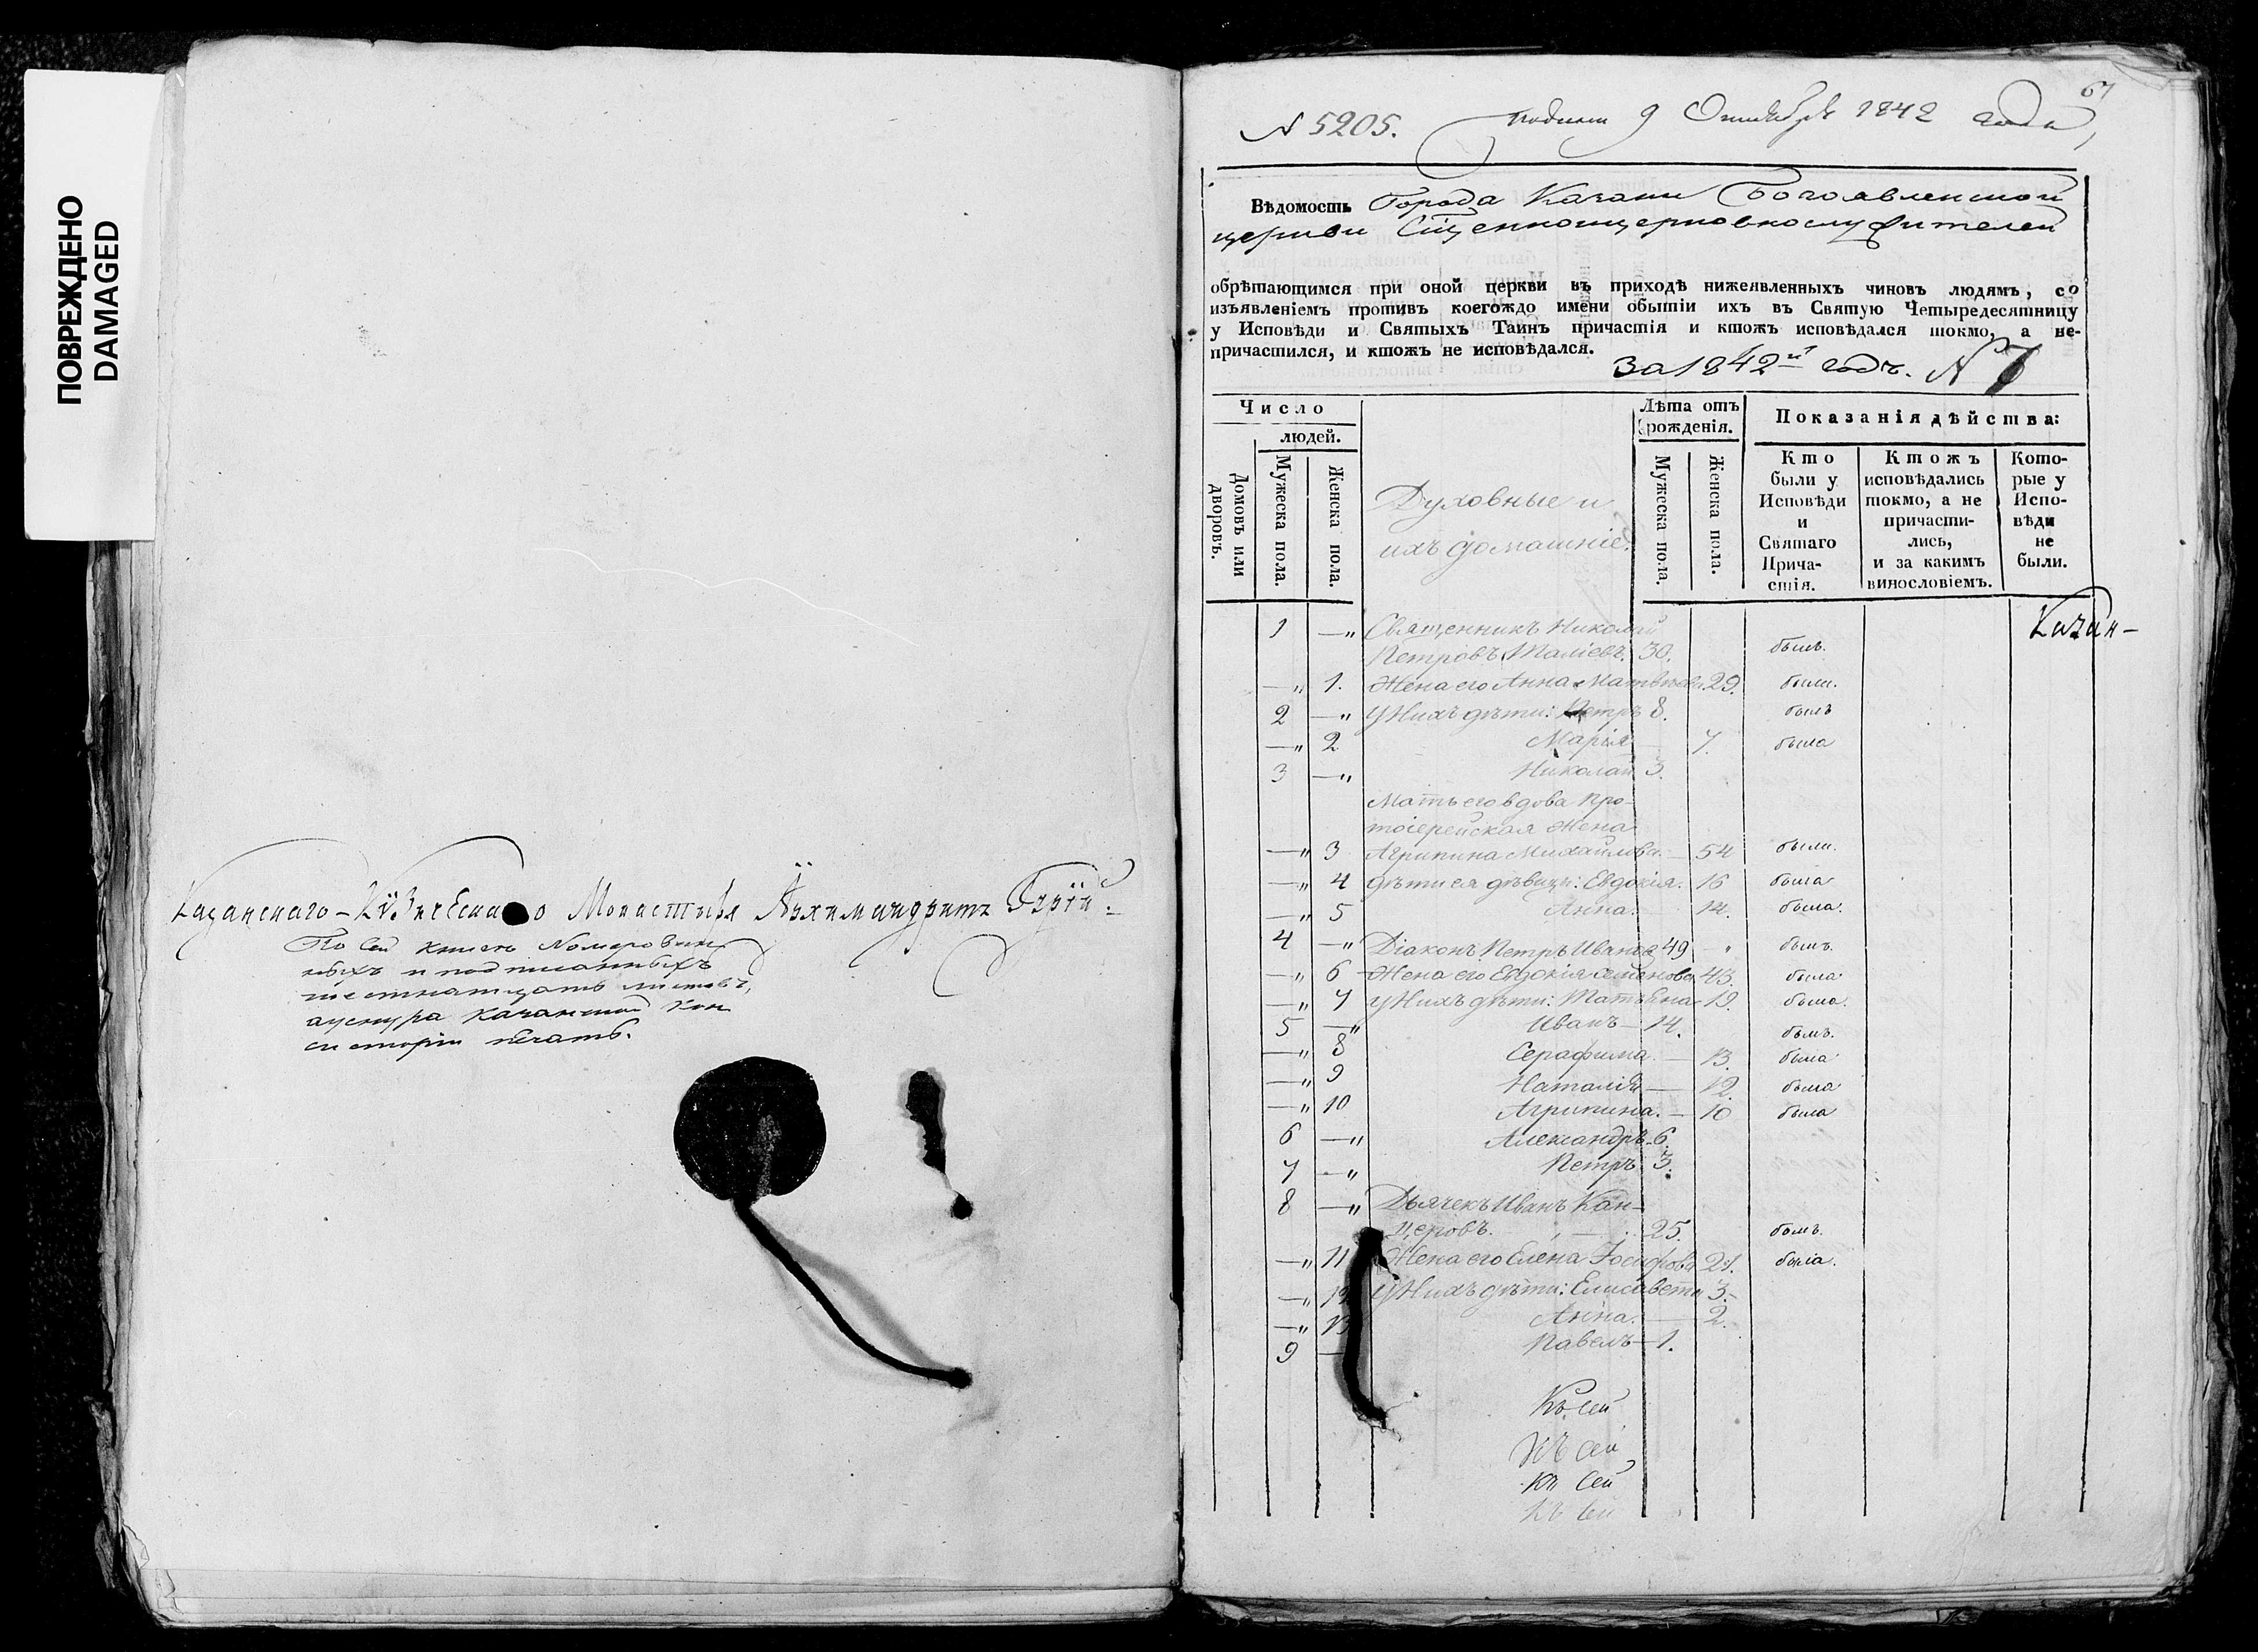 ПОВРЕЖДЕНО
DAMAGED
Казанскаго-Кизическаго Монастыря Архимандритъ Гурій.
По сей книгѣ номерован-
ныхъ и подписанныхъ
шестнатцать листовъ,
а у снура Казанской Кон
систоріи печать.
67
№ 5205. 9 Октября 1842 года
Вѣдомость Города Казани Богоявленской
церкви Сщенноцерковнослужителей
обрѣтающимся при оной церкви въ приходѣ нижеявленныхъ чиновъ людямъ, со
изъявленіемъ противъ коегождо имени обытіи ихъ въ Святую Четыредесятницу
у Исповѣди и Святыхъ Таинъ причастія и ктожъ исповѣдался токмо, а не-
причастился, и ктожъ не исповѣдался.
за 1842й годъ. № 7
Число
людей.
Домовъ или
дворовъ.
Мужеска пола.
Женска пола.
Духовные и
ихъ домашніе.
Лѣта отъ
рожденія.
Мужеска пола.
Женска пола.
Показанія дѣйства:
Кто
были у
Исповѣди
и
Святаго
Прича-
стія.
Ктожъ
исповѣдались
токмо, а не
причасти-
лись,
и за какимъ
винословіемъ.
Кото-
рые у
Испо-
вѣди
не
были.
Казан-
1 —„ Священникъ Николай
Петровъ Маліевъ. 30. былъ.
—„ 1. Жена его Анна Матвѣева. 29. были.
2 —„ У Нихъ дѣти: Петръ 8. былъ
—„ 2 Марія 7. была
3 —„ Николай 3.
Мать его вдова Про-
тоіерейская жена
—„ 3 Агрипина Михайлова. — 54 были.
—„ 4 дѣти ея дѣвицы: Евдокія. 16 была
—„ 5 Анна. 14. была.
4 —„ Діаконъ Петръ Ивановъ 49 „ былъ.
—„ 6 Жена его Евдокія Семенова 43. была
—„ 7 У Нихъ дѣти: Татьяна 19. была.
5 —„ Иванъ — 14. былъ.
—„ 8 Серафима. — 13. была
—„ 9 Наталія — 12. была
—„ 10 Агрипина. — 10 была
6 —„ Александръ 6.
7 —„ Петръ 3.
8 —„ Дьячекъ Иванъ Кан-
церовъ. 25. былъ.
—„ 11 Жена его Елена Іосифова 21. была.
—„ 12 У Нихъ дѣти: Елисавета 3.
—„ 13 Анна. — 2.
9 — Павелъ — 1.
Къ сей
Къ сей
Къ Сей
Къ сей